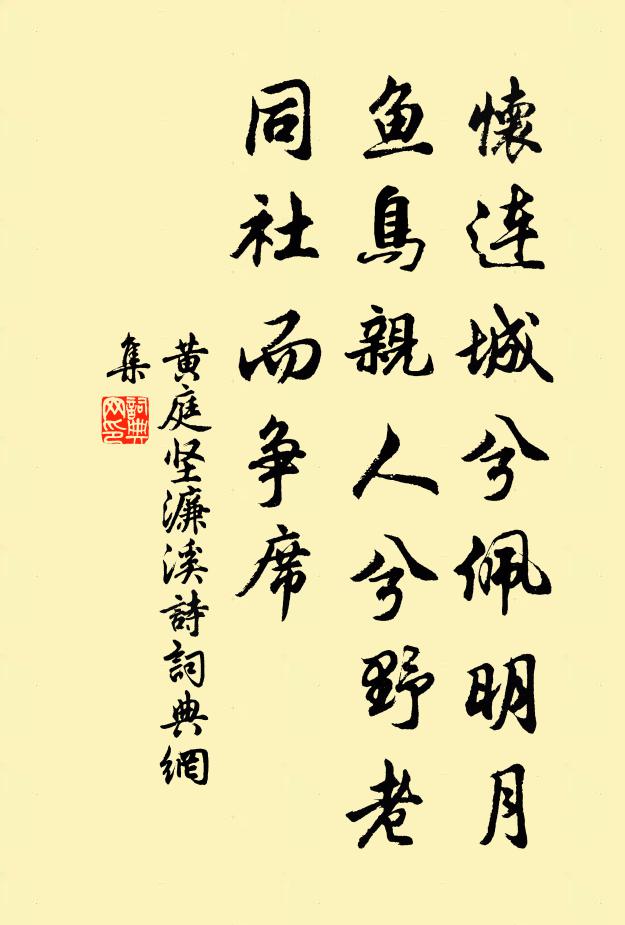 懷連城兮佩明月
鱼鳥親人兮野老
同社而争席
黄庭坚濂溪詩詞典網
集
詞典
网印